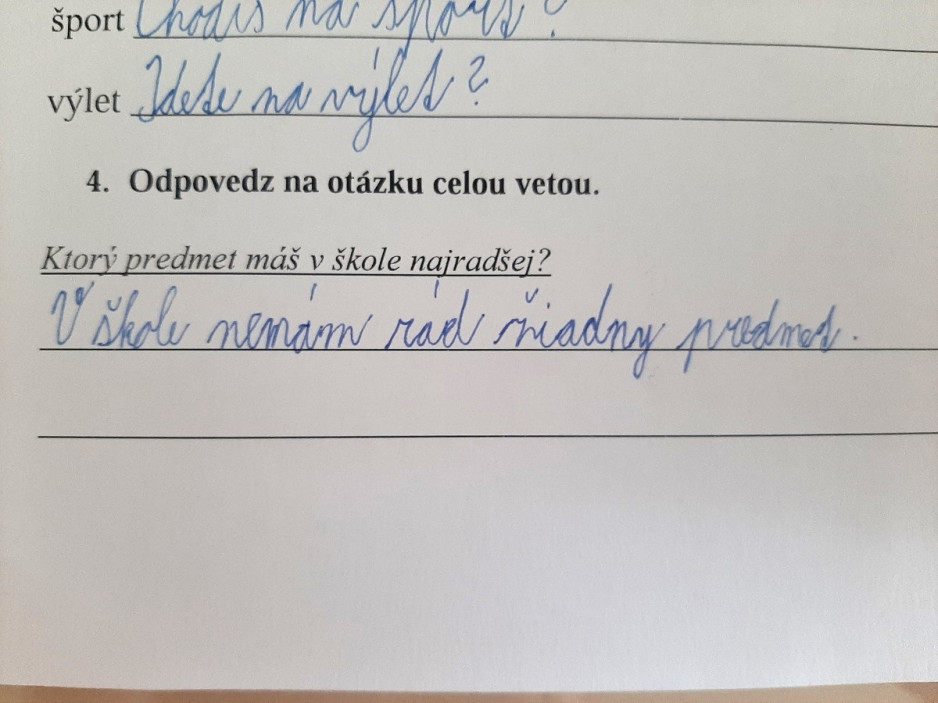 šport Chodíš na šport?
výlet Idete na výlet?
4. Odpovedz na otázku celou vetou.
Ktorý predmet máš v škole najradšej?
V škole nemám rád žiadny predmet.